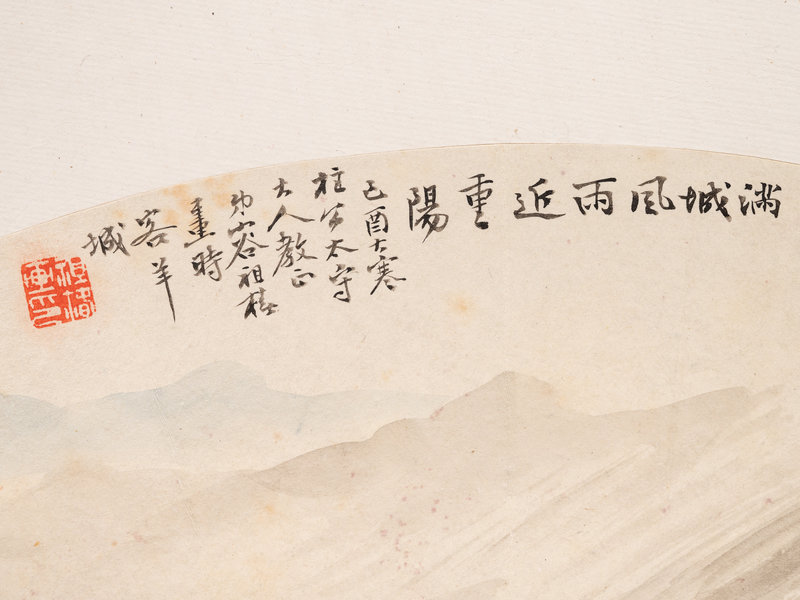 滿城風雨近重陽
己酉大寒
柱太守
大人教正
弟容祖椿
畫時
客羊
城
祖椿畫印